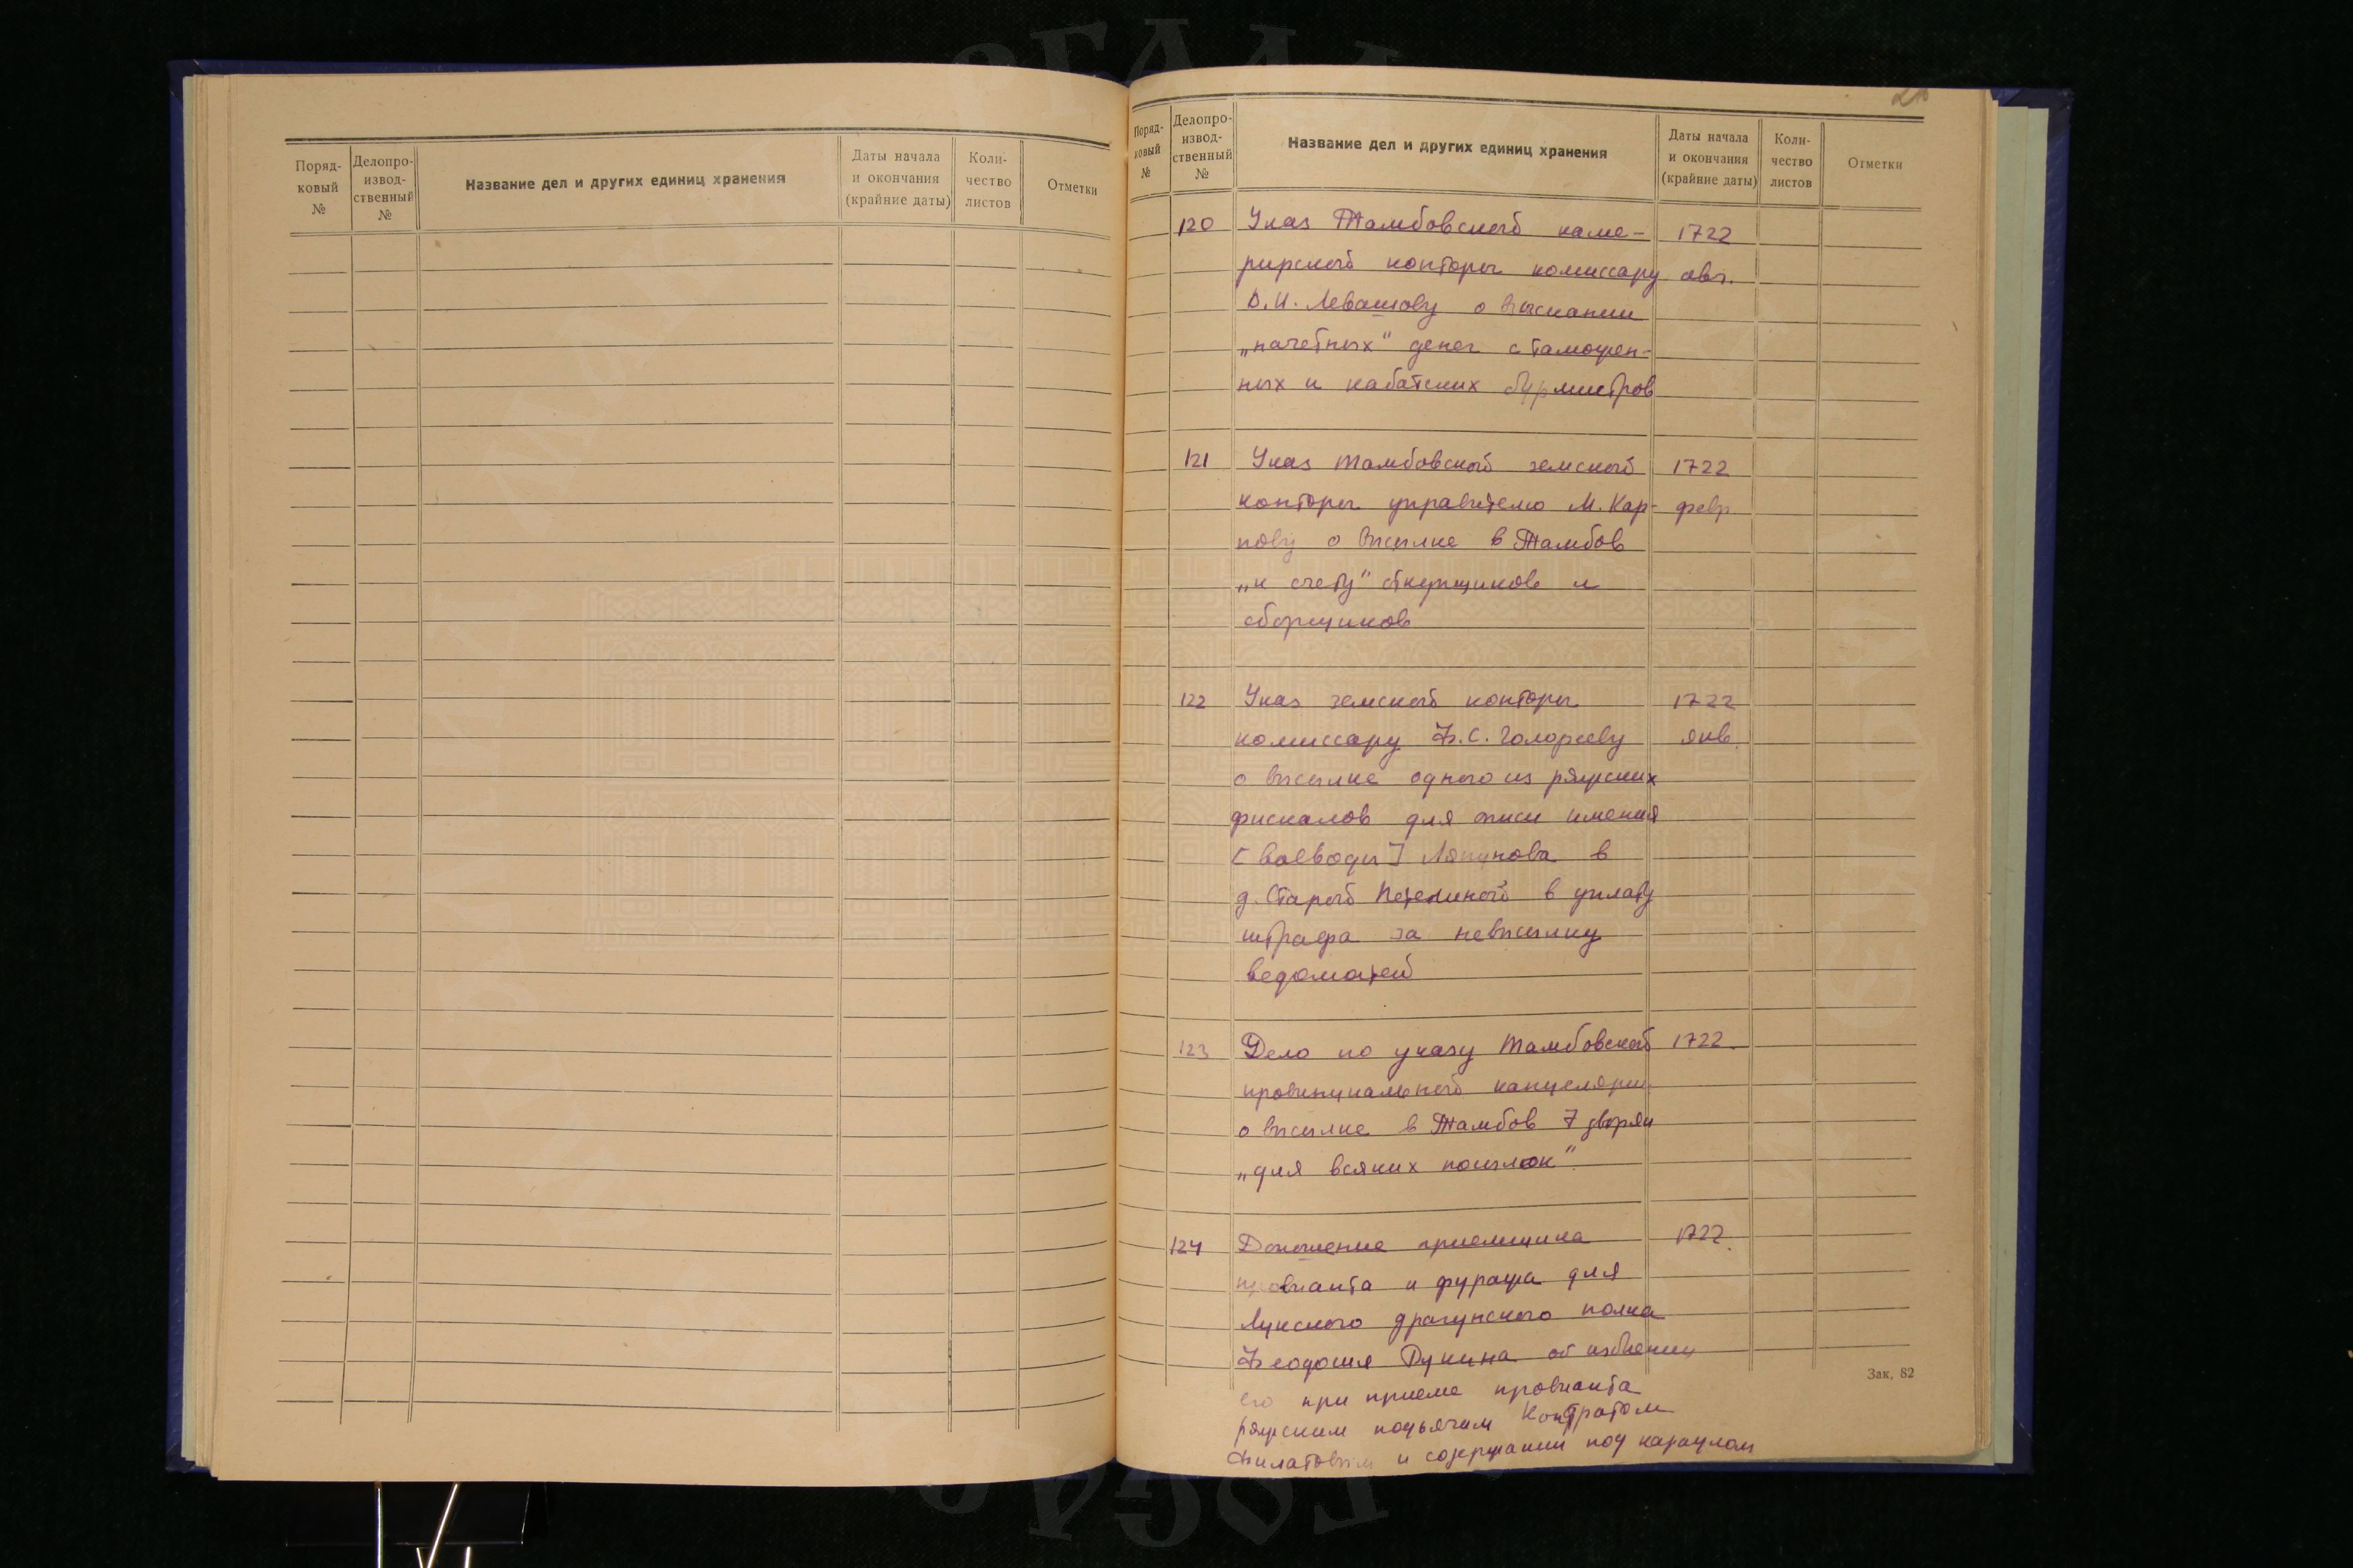 Поряд-
ковый
№
Делопро-
извод-
ственный
№
Название дел и других единиц хранения
Даты начала
и окончания
(крайние даты)
Коли-
чество
листов
Отметки
Поряд-
ковый
№
Делопро-
извод-
ственный
№
Название дел и других единиц хранения
Даты начала
и окончания
(крайние даты)
Коли-
чество
листов
Отметки
120 Указ Тамбовской каме- 1722
рирской конторы комиссару авг.
Д.И. Левашову о взыскании
„начетных" денег с таможен-
ных и кабатских бурмистров
121 Указ тамбовской земской 1722
конторы управителю М. Кар- февр.
пову о высылке в Тамбов
„к счету" откупщиков и
сборщиков
122 Указ земской конторы 1722
комиссару Ф.С. Голофееву янв.
о высылке одного из ряжских
фискалов для описи имения
[воеводы] Ляпунова в
д. Старой в уплату
штрафа за невысылку
ведомостей
123 Дело по указу тамбовской 1722.
провинциальной канцелярии
о высылке в Тамбов 7 дворян
„для всяких посылок".
124 Доношение приемщика 1722.
провианта и фуража для
Луцкого драгунского полка
Феодосия Дунина об избиении
его при приеме провианта
ряжским подьячим Кондратом
Филатовым и содержании под караулом
Зак. 82